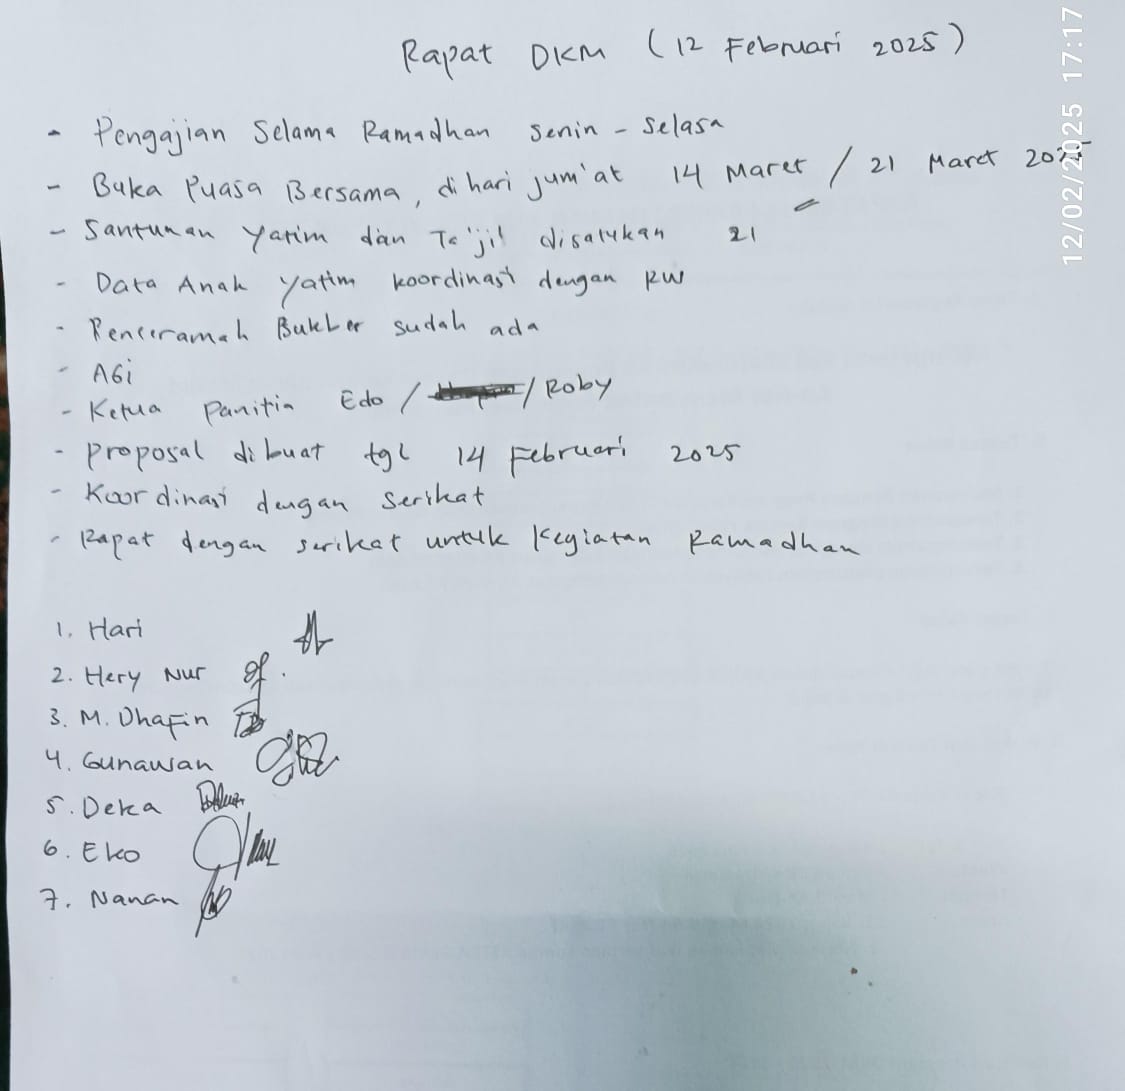 Rapat DKM (12 Februari 2025)
- Pengajian Selama Ramadhan Senin - Selasa
- Buka Puasa Bersama, di hari jum'at 14 Maret / 21 Maret 2025
- Santunan Yatim dan Ta'jil disatukan 21
- Data Anak Yatim koordinasi dengan RW
- Penceramah Bukber sudah ada
- Agi
- Ketua Panitia Edo / / Roby
- Proposal dibuat tgl 14 Februari 2025
- Koordinasi dengan Serikat
- Rapat dengan serikat untuk Kegiatan Ramadhan
1. Hari
2. Hery Nur
3. M. Dhafin
4. Gunawan
5. Deka
6. Eko
7. Nanan
12/02/2025 17:17